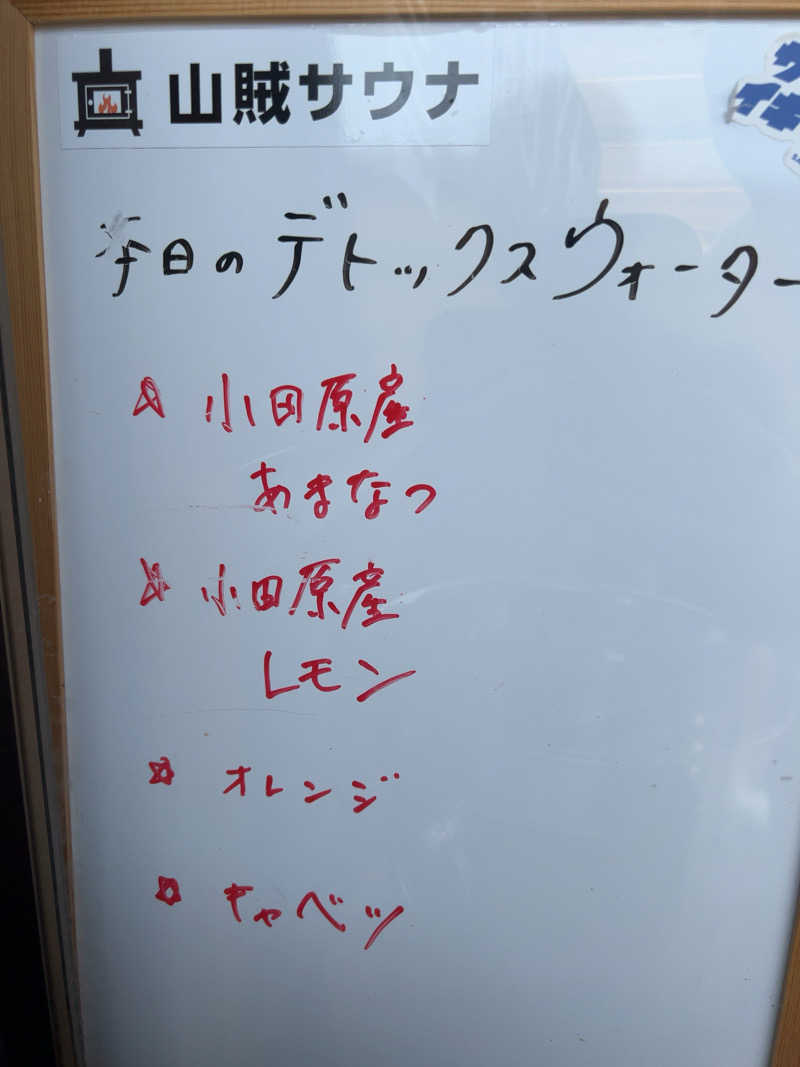 山賊サウナ
本日のデトックスウォーター
☆ 小田原産
あまなつ
☆ 小田原産
レモン
☆ オレンジ
☆ キャベツ